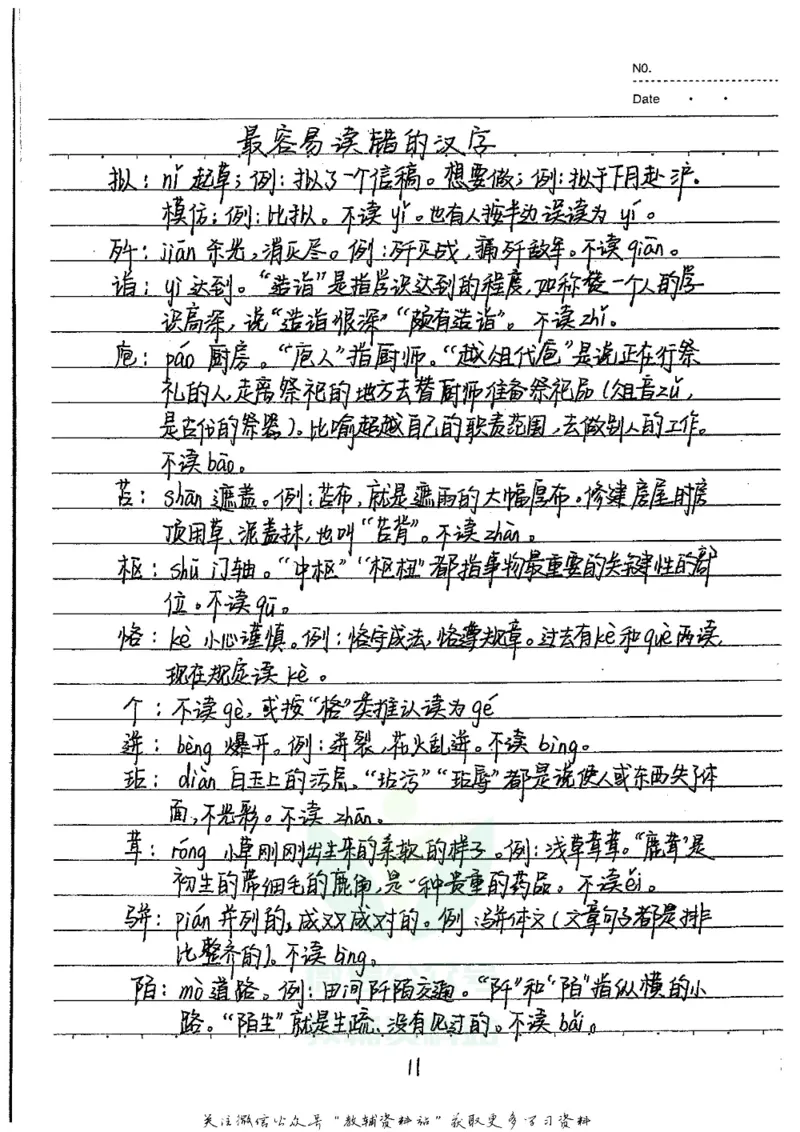 NO.
Date
最容易读错的汉字
拟：nǐ 起草；例：拟了一个信稿。想要做；例：拟于下月赴沪。
模仿；例：比拟。不读 yǐ。也有人按半边误读为 yí。
歼：jiān 杀光，消灭尽。例：歼灭战，痛歼敌军。不读 qiān。
诣：yì 达到。“造诣”是指学识达到的程度，如称赞一个人的学
识高深，说“造诣很深”“颇有造诣”。不读 zhǐ。
庖：páo 厨房。“庖人”指厨师。“越俎代庖”是说正在行祭
礼的人，走离祭祀的地方去替厨师准备祭祀品（俎音zǔ，
是古代的祭器）。比喻超越自己的职责范围，去做别人的工作。
不读 bāo。
苫：shān 遮盖。例：苫布，就是遮雨的大幅厚布。修建房屋时房
顶用草、泥盖抹，也叫“苫背”。不读 zhān。
枢：shū 门轴。“中枢”“枢纽”都指事物最重要的关键性的部
位。不读 qū。
恪：kè 小心谨慎。例：恪守成法，恪遵规章。过去有kè和què两读，
现在规定读 kè。
个：不读 gè，或按“格”类推认读为 gé
迸：bèng 爆开。例：迸裂，花火乱迸。不读 bìng。
玷：diàn 白玉上的污点。“玷污”“玷辱”都是说使人或东西失了体
面，不光彩。不读 zhān。
茸：róng 小草刚刚出生来的柔软的样子。例：浅草茸茸。“鹿茸”是
初生的带细毛的鹿角，是一种贵重的药品。不读 ěi。
骈：pián 并列的，成双成对的。例：骈体文（文章句子都是排
比整齐的）。不读 bìng。
陌：mò 道路。例：田间阡陌交通。“阡”和“陌”指纵横的小
路。“陌生”就是生疏、没有见过的。不读 bǎi。
11
关注微信公众号“教辅资料站”获取更多学习资料